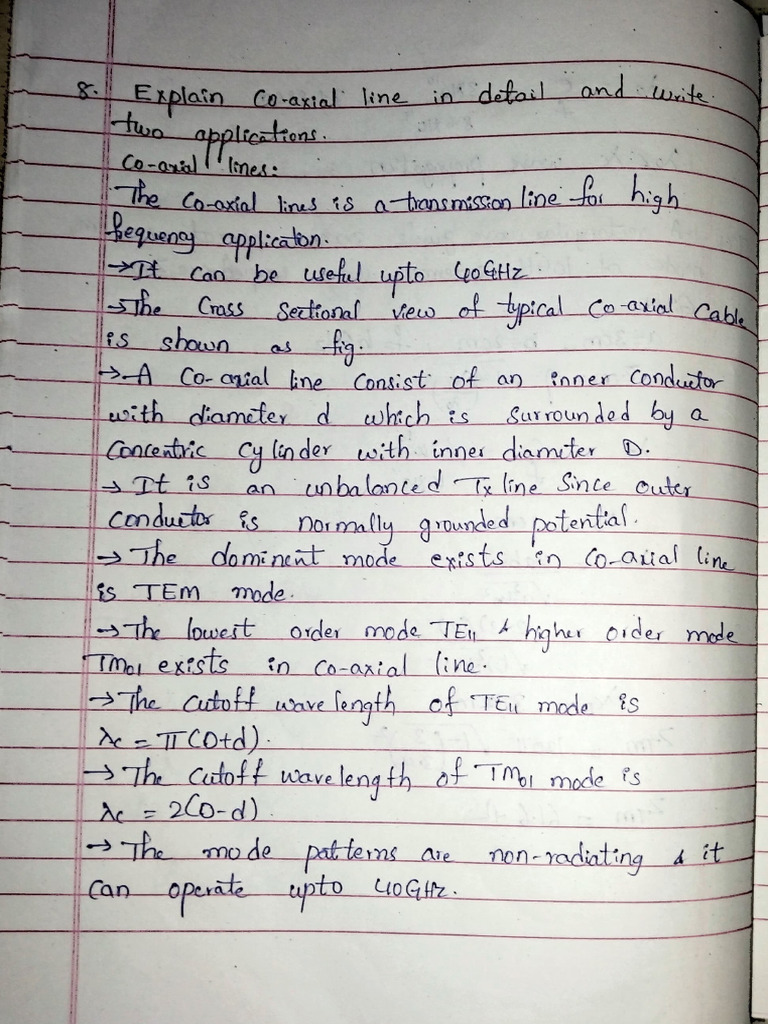 8. Explain Co-axial line in detail and write
two applications.
Co-axial lines:
The Co-axial lines is a transmission line for high
frequency applicaton.
→It can be useful upto 40GHz.
→The Cross Sectional view of typical Co-axial Cable
is shown as fig.
→A Co-axial line Consist of an inner Conductor
with diameter d which is Surrounded by a
Concentric Cylinder with inner diameter D.
→ It is an unbalanced Tx line Since outer
Conductor is normally grounded potential.
→ The dominent mode exists in Co-axial line
is TEM mode.
→ The lowest order mode TE11 & higher order mode
TM01 exists in co-axial line.
→ The Cutoff wave length of TE11 mode is
λc = π(D+d).
→ The Cutoff wavelength of TM01 mode is
λc = 2(D-d).
→ The mode patterns are non-radiating & it
Can operate upto 40GHz.